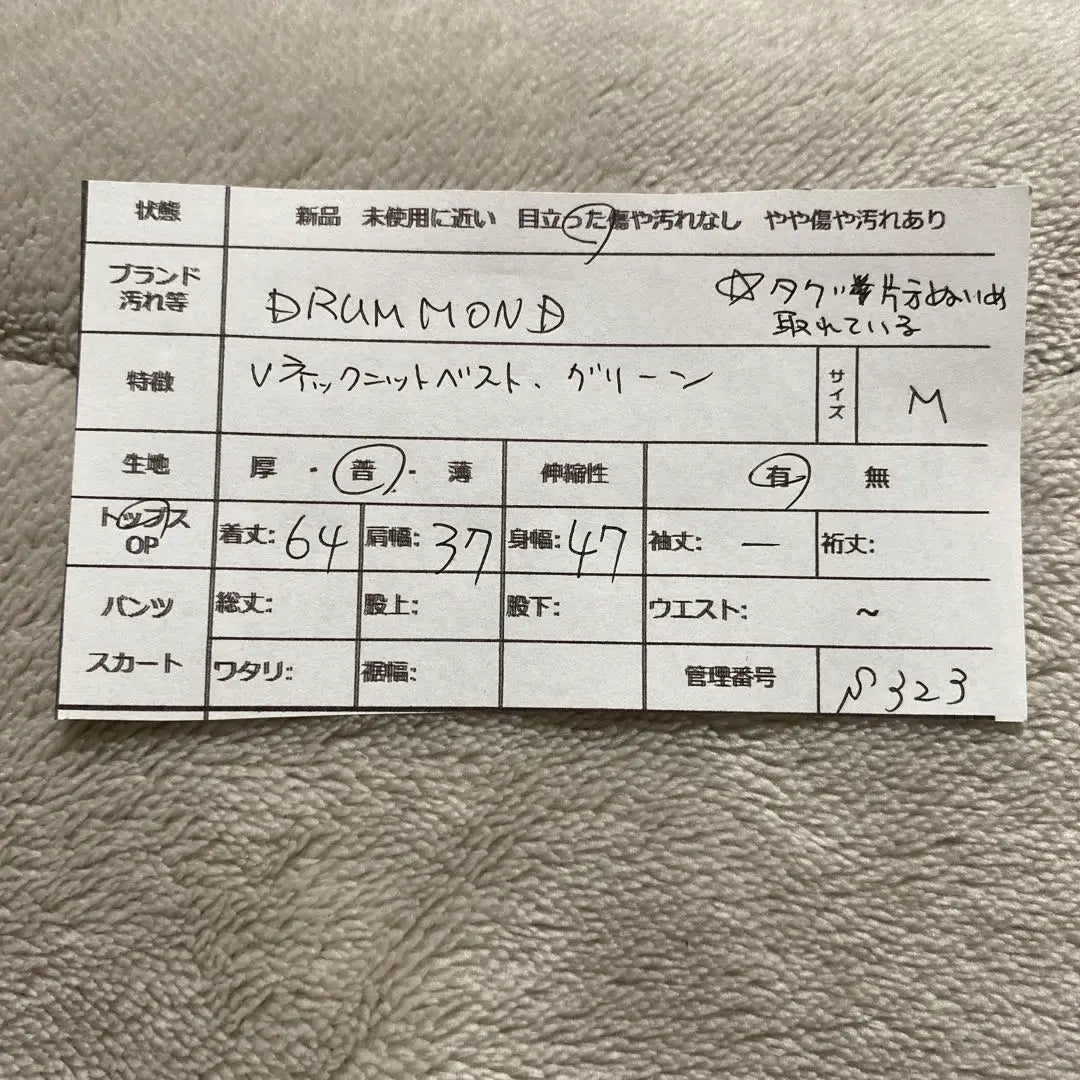 状態 新品 未使用に近い 目立った傷や汚れなし やや傷や汚れあり
ブランド
汚れ等
DRUMMOND
☆タグ 片方ぬいめ
取れている
特徴 Vネックニットベスト、グリーン サイズ M
生地 厚・普・薄 伸縮性 有 無
トップス
OP
着丈: 64 肩幅: 37 身幅: 47 袖丈: ー 裄丈:
パンツ 総丈: 股上: 股下: ウエスト: ~
スカート ワタリ: 裾幅: 管理番号 S323